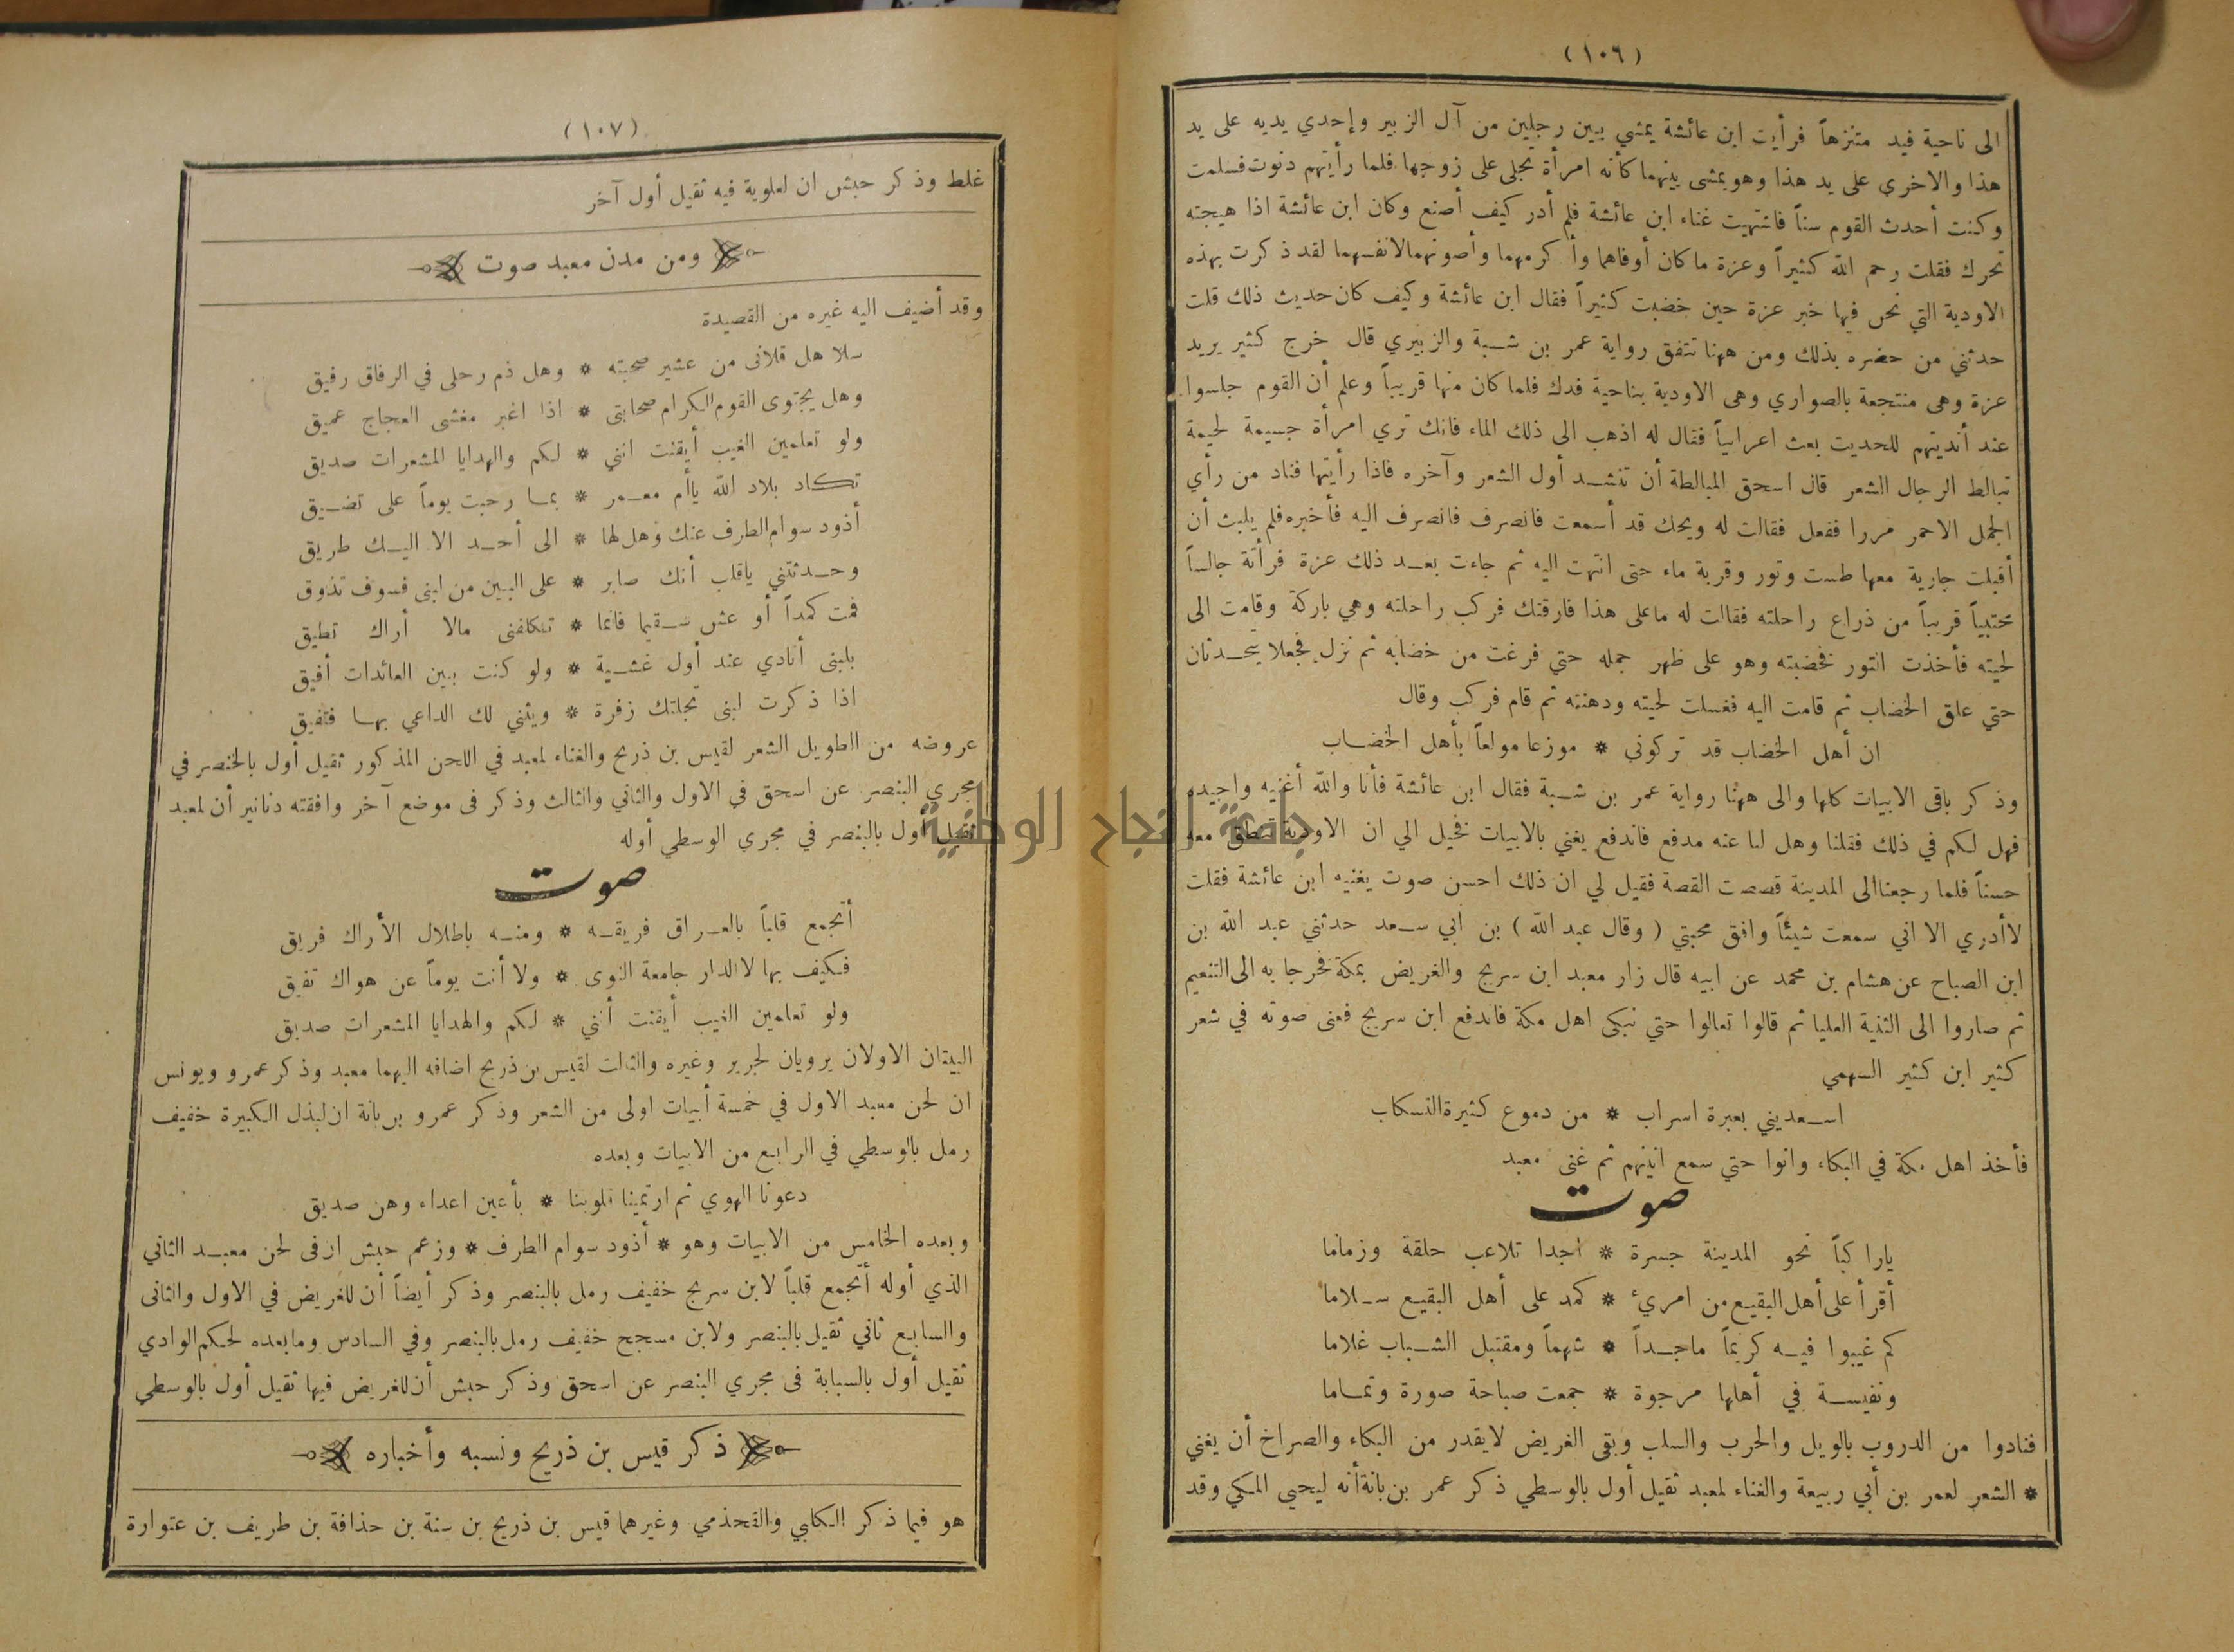 (١٠٦)
الى ناحية فيد متنزهاً فرأيت ابن عائشة يمشي بين رجلين من آل الزبير وإحدي يديه على يد
هذا والاخري على يد هذا وهو يمشى بينهما كأنه امرأة تجلى على زوجها فلما رأيتهم دنوت فسلمت
وكنت أحدث القوم سناً فاشتهيت غناء ابن عائشة فلم أدر كيف أصنع وكان ابن عائشة اذا هيجته
تحرك فقلت رحم الله كثيراً وعزة ما كان أوفاهما وأكرمهما وأصونهما لانفسهما لقد ذكرت بهذه
الاودية التي نحن فيها خبر عزة حين خضبت كثيراً فقال ابن عائشة وكيف كان حديث ذلك قلت
حدثني من حضره بذلك ومن ههنا تتفق رواية عمر بن شبة والزبيري قال خرج كثير يريد
عزة وهى منتجعة بالصواري وهى الاودية بناحية فدك فلما كان منها قريباً وعلم أن القوم جلسوا
عند أنديتهم للحديث بعث اعرابياً فقال له اذهب الى ذلك الماء فانك تري امرأة جسيمة لحيمة
تبالط الرجال الشعر قال اسحق المبالطة أن تنشد أول الشعر وآخره فاذا رأيتها فناد من رأي
الجمل الاحمر مررا ففعل فقالت له ويحك قد أسمعت فانصرف فانصرف اليه فأخبره فلم يلبث أن
أقبلت جارية معها طست وتور وقربة ماء حتى انتهت اليه ثم جاءت بعد ذلك عزة فرأته جالساً
محتبياً قريباً من ذراع راحلته فقالت له ما على هذا فارقتك فركب راحلته وهي باركة وقامت الى
لحيته فأخذت التور فخضبته وهو على ظهر جمله حتي فرغت من خضابه ثم نزل فجعلا يتحدثان
حتي علق الخضاب ثم قامت اليه فغسلت لحيته ودهنته ثم قام فركب وقال
ان أهل الخضاب قد تركوني * موزعا مولعاً بأهل الخضاب
وذكر باقى الابيات كلها والى ههنا رواية عمر بن شبة فقال ابن عائشة فأنا والله أغنيه واجيده
فهل لكم في ذلك فقلنا وهل لنا عنه مدفع فاندفع يغني بالابيات فخيل الي ان الاودية تنطق معه
حسناً فلما رجعنا الى المدينة قصصت القصة فقيل لي ان ذلك احسن صوت يغنيه ابن عائشة فقلت
لا أدري الا اني سمعت شيئاً وافق محبتي ( وقال عبد الله ) بن ابي سعد حدثني عبد الله بن
ابن الصباح عن هشام بن محمد عن ابيه قال زار معبد ابن سريج والغريض بمكة فخرجا به الى التنعيم
ثم صاروا الى الثنية العليا ثم قالوا تعالوا حتي نبكى اهل مكة فاندفع ابن سريج فغنى صوته في شعر
كثير ابن كثير السهمي
اسعديني بعبرة اسراب * من دموع كثيرة التسكاب
فأخذ اهل مكة في البكاء وانوا حتي سمع انينهم ثم غنى معبد
صوت
يا راكباً نحو المدينة جسرة * اجدا تلاعب حلقة وزماما
أقرأ على أهل البقيع من امريء * كمد على أهل البقيع سلاما
كم غيبوا فيه كريماً ماجداً * شهماً ومقتبل الشباب غلاما
ونفيسة في أهلها مرجوة * جمعت صباحة صورة وتماما
فنادوا من الدروب بالويل والحرب والسلب وبقى الغريض لا يقدر من البكاء والصراخ أن يغني
* الشعر لعمر بن أبي ربيعة والغناء لمعبد ثقيل أول بالوسطي ذكر عمر بن بانة أنه ليحيي المكي وقد
(١٠٧)
غلط وذكر حبش ان لعلوية فيه ثقيل أول آخر
ومن مدن معبد صوت
وقد أضيف اليه غيره من القصيدة
سلا هل قلانى من عشير صحبته * وهل ذم رحلى في الرفاق رفيق
وهل يجتوى القوم الكرام صحابتى * اذا اغبر مغشى العجاج عميق
ولو تعلمين الغيب أيقنت انني * لكم والهدايا المشعرات صديق
تكاد بلاد الله يا أم معمر * بما رحبت يوماً على تضيق
أذود سوام الطرف عنك وهل لها * الى أحد الا اليك طريق
وحدثتني ياقلب أنك صابر * على البين من لبنى فسوف تذوق
فمت كمداً أو عش سقيما فانما * تكلفنى مالا أراك تطيق
بلبنى أنادي عند أول غشية * ولو كنت بين العائدات أفيق
اذا ذكرت لبنى تجلتك زفرة * ويثني لك الداعي بها فتفيق
عروضه من الطويل الشعر لقيس بن ذريح والغناء لمعبد في اللحن المذكور ثقيل أول بالخنصر في
مجري البنصر عن اسحق في الاول والثاني والثالث وذكر فى موضع آخر وافقته دنانير أن لمعبد
ثقيل أول بالبنصر في مجري الوسطي أوله
صوت
أتجمع قلباً بالعراق فريقه * ومنه باطلال الأراك فريق
فكيف بها لا الدار جامعة النوى * ولا أنت يوماً عن هواك تفيق
ولو تعلمين الغيب أيقنت أنني * لكم والهدايا المشعرات صديق
البيتان الاولان يرويان لجرير وغيره والثالث لقيس بن ذريح اضافه اليهما معبد وذكر عمرو ويونس
ان لحن معبد الاول في خمسة أبيات اولى من الشعر وذكر عمرو بن بانة ان لبذل الكبيرة خفيف
رمل بالوسطي في الرابع من الابيات وبعده
دعونا الهوي ثم ارتمينا قلوبنا * بأعين اعداء وهن صديق
وبعده الخامس من الابيات وهو * أذود سوام الطرف * وزعم حبش ان فى لحن معبد الثاني
الذي أوله أتجمع قلباً لابن سريج خفيف رمل بالبنصر وذكر أيضاً أن للغريض في الاول والثانى
والسابع ثاني ثقيل بالبنصر ولابن مسجح خفيف رمل بالبنصر وفي السادس وما بعده لحكم الوادي
ثقيل أول بالسبابة فى مجري البنصر عن اسحق وذكر حبش أن للغريض فيها ثقيل أول بالوسطي
ذكر قيس بن ذريح ونسبه وأخباره
هو فيما ذكر الكلبي والقحذمي وغيرهما قيس بن ذريح بن سنة بن حذافة بن طريف بن عتوارة
جامعة النجاح الوطنية